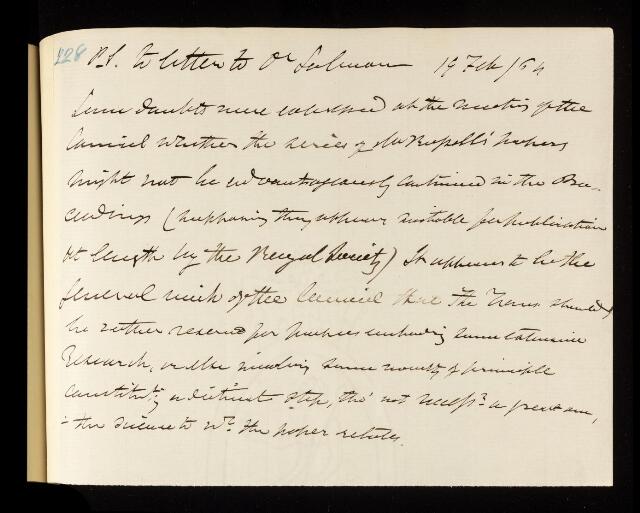 228
P.S. to letter to Dr Salmon 19 Feb/64
Some doubts were expressed at the meeting of the
Council whether the series of Mr Russell's papers
might not be advantageously continued in the Pro-
ceedings (supposing they appear suitable for publication
at length by the Royal Society) It appears to be the
general wish of the Council that the Trans. should
be rather reserved for papers embodying some extensive
Research, or else involving some novelty of principle
constitutg a distinct step, tho' not necessy a great one,
in the science to wh. the paper relates.